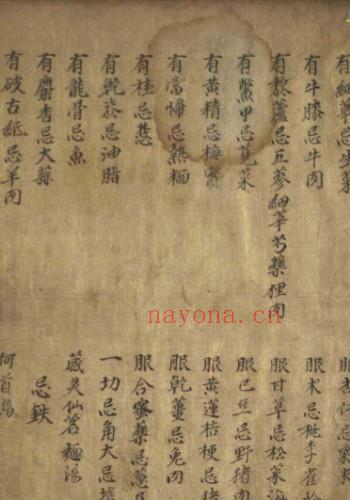 有細辛忌生菜
有牛膝忌牛肉
有藜蘆忌巨蔘細辛芍藥狸肉
有鱉甲忌莧菜
有黃精忌梅實
有當歸忌熱麵
有桂忌葱
有乾忌油脂
有龍骨忌魚
有麝香忌大蒜
有破古紙忌羊肉
服杏仁忌粟
服朮忌桃李雀蛤
服甘草忌松菜海
服巴豆忌野猪肉
服黃蓮桔梗忌猪
服乾薑忌兎肉
服合蜜藥忌葱及
一切忌角大忌
葳灵仙茗麵湯
忌鉄
何首烏
nayona.cn